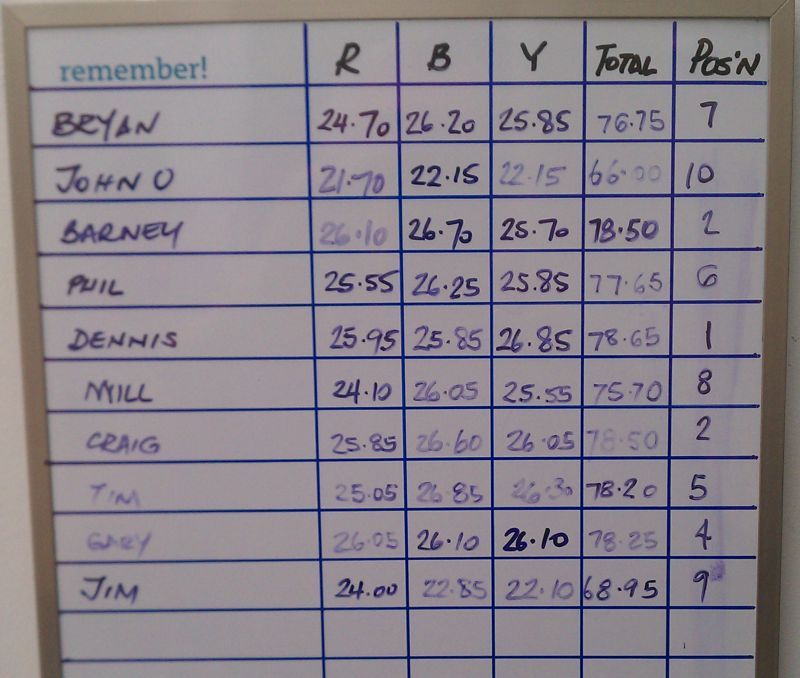 remember! R B Y TOTAL POS'N
BRYAN 24.70 26.20 25.85 76.75 7
JOHN O 21.70 22.15 22.15 66.00 10
BARNEY 26.10 26.70 25.70 78.50 2
PHIL 25.55 26.25 25.85 77.65 6
DENNIS 25.95 25.85 26.85 78.65 1
MILL 24.10 26.05 25.55 75.70 8
CRAIG 25.85 26.60 26.05 78.50 2
TIM 25.05 26.85 26.30 78.20 5
GARY 26.05 26.10 26.10 78.25 4
JIM 24.00 22.85 22.10 68.95 9